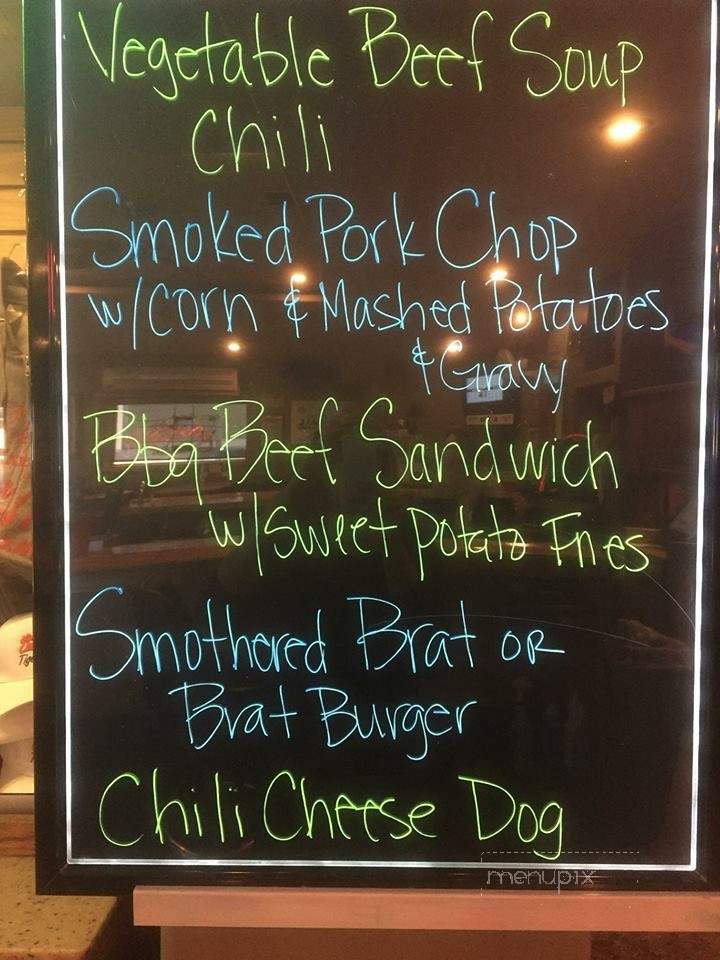 Vegetable Beef Soup
Chili
Smoked Pork Chop
w/corn & Mashed Potatoes
& Gravy
Bbq Beef Sandwich
w/Sweet Potato Fries
Smothered Brat OR
Brat Burger
Chili Cheese Dog
menupix